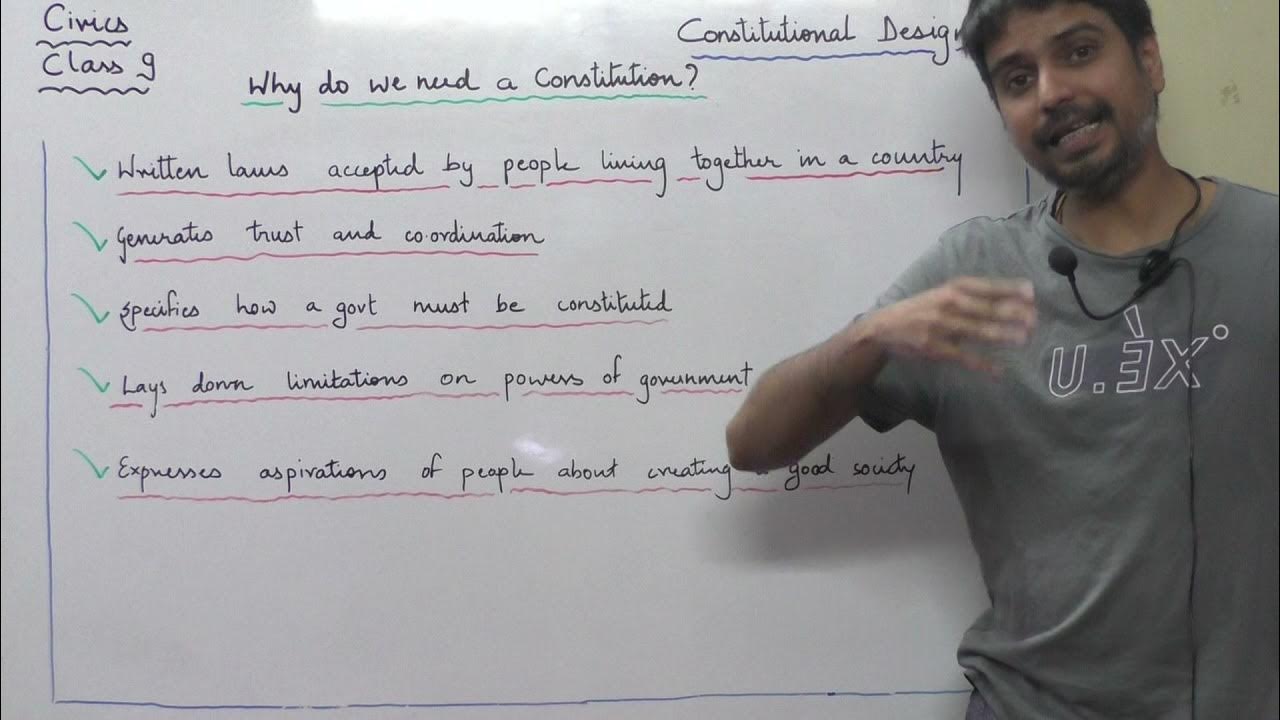 Civics
Class 9
Constitutional Design
Why do we need a Constitution?
Written laws accepted by people living together in a country
Generates trust and co-ordination
Specifies how a govt must be constituted
Lays down limitations on powers of government
Expresses aspirations of people about creating a good society